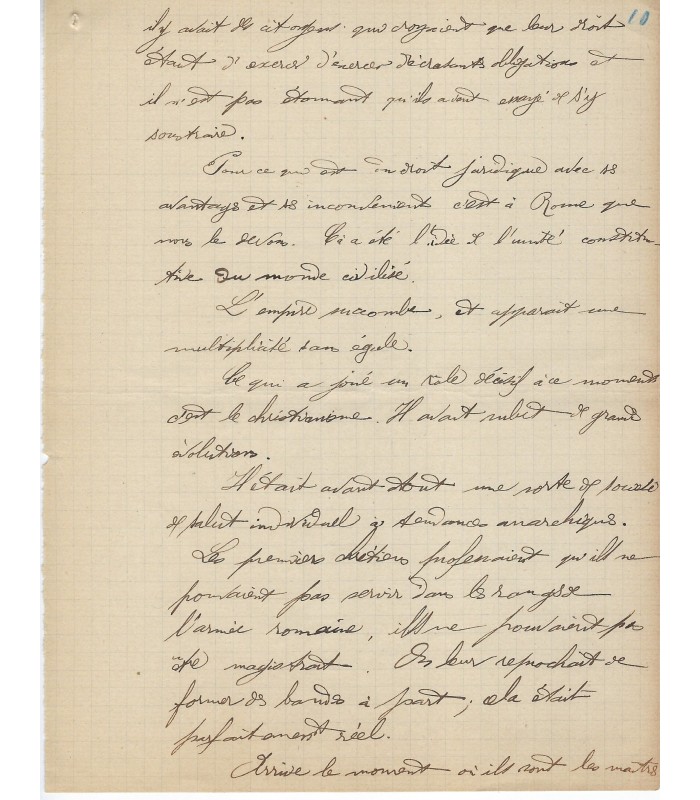 10
il y avait des citoyens qui croyaient que leur droit
était d'exercer d'exercer d'écrasants obligations et
il n'est pas étonnant qu'ils avent essayé de s'y
soustraire.
Pour ce qui est du droit juridique avec ses
avantages et ses inconvénient c'est à Rome que
nous le devons. Ça a été l'idée de l'unité constitu-
tive du monde civilisé.
L'empire succombe, et apparait une
multiplicité sans égale.
Ce qui a joué un role décisif à ce moment
c'est le christianisme. Il avait subit de grand
évolution.
Il était avant tout une sorte de société
de salut individuel à tendances anarchiques.
Les premiers chrétiens professaient qu'ils ne
pouvaient pas servir dans les rangs de
l'armée romaine, ils ne pouvaient pas
être magistrat. On leur reprochait de
former des bandes à part ; cela était
parfaitement réel.
Arrive le moment où ils sont les maitres